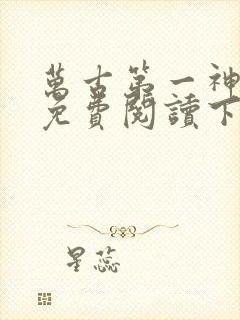 萬古第一神
免費閱讀下
星蕊